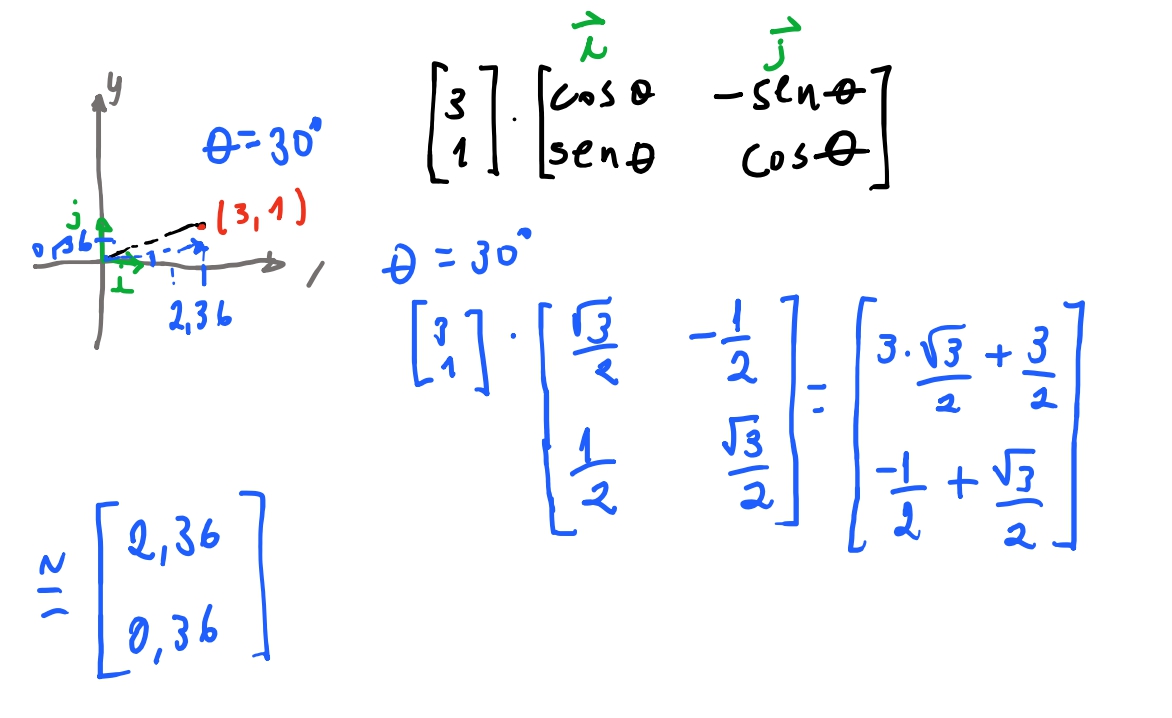 y
θ = 30°
(3, 1)
j
i
0,36
1
2,36
i j
[3 1] · [cos θ -sen θ
sen θ cos θ]
θ = 30°
[3 1] · [√3/2 -1/2
1/2 √3/2] = [3·√3/2 + 3/2
-1/2 + √3/2]
≅ [2,36
0,36]